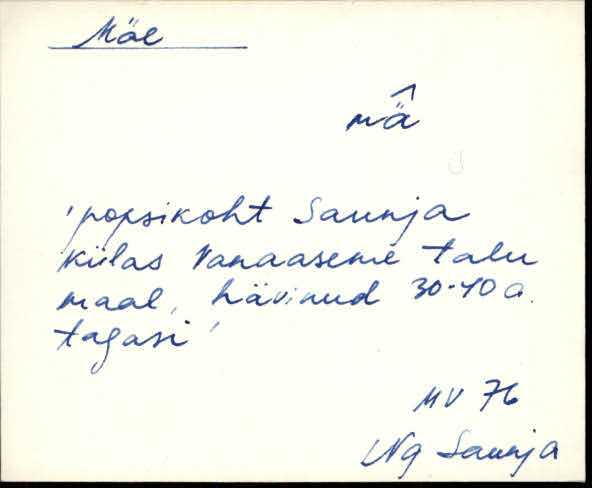 Mäe
mä̂
'popsikoht Saunja
külas Vanaaseme talu
maal, hävinud 30-40 a.
tagasi'
MV 76
Ng Saunja